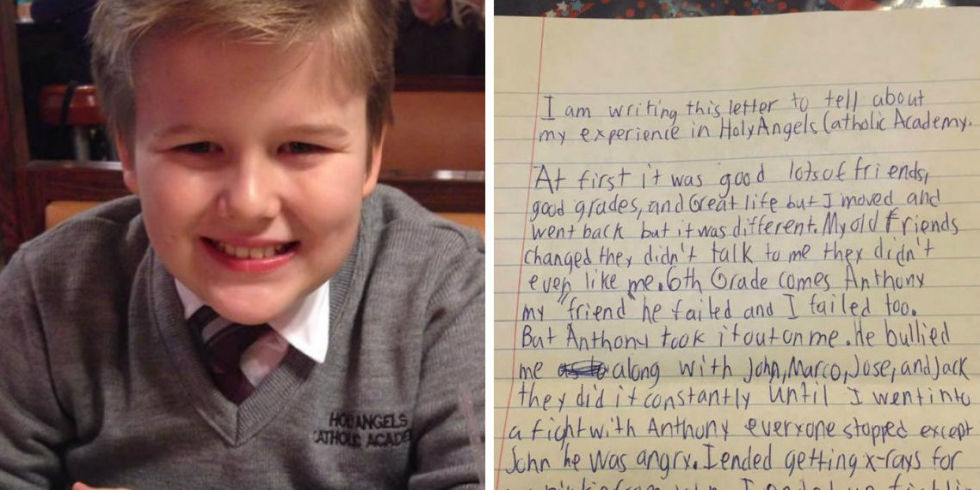 HOLY ANGELS
CATHOLIC ACADEM
I am writing this letter to tell about
my experience in HolyAngels Catholic Academy.
At first it was good lots of friends,
good grades, and Great life but I moved and
went back but it was different. My old friends
changed they didn't talk to me they didn't
even like me. 6th Grade comes Anthony
my "friend" he failed and I failed too.
But Anthony took it out on me. He bullied
me along with John, Marco, Jose, and Jack
they did it constantly until I went into
a fight with Anthony everyone stopped except
John he was angry. I ended getting x-rays for